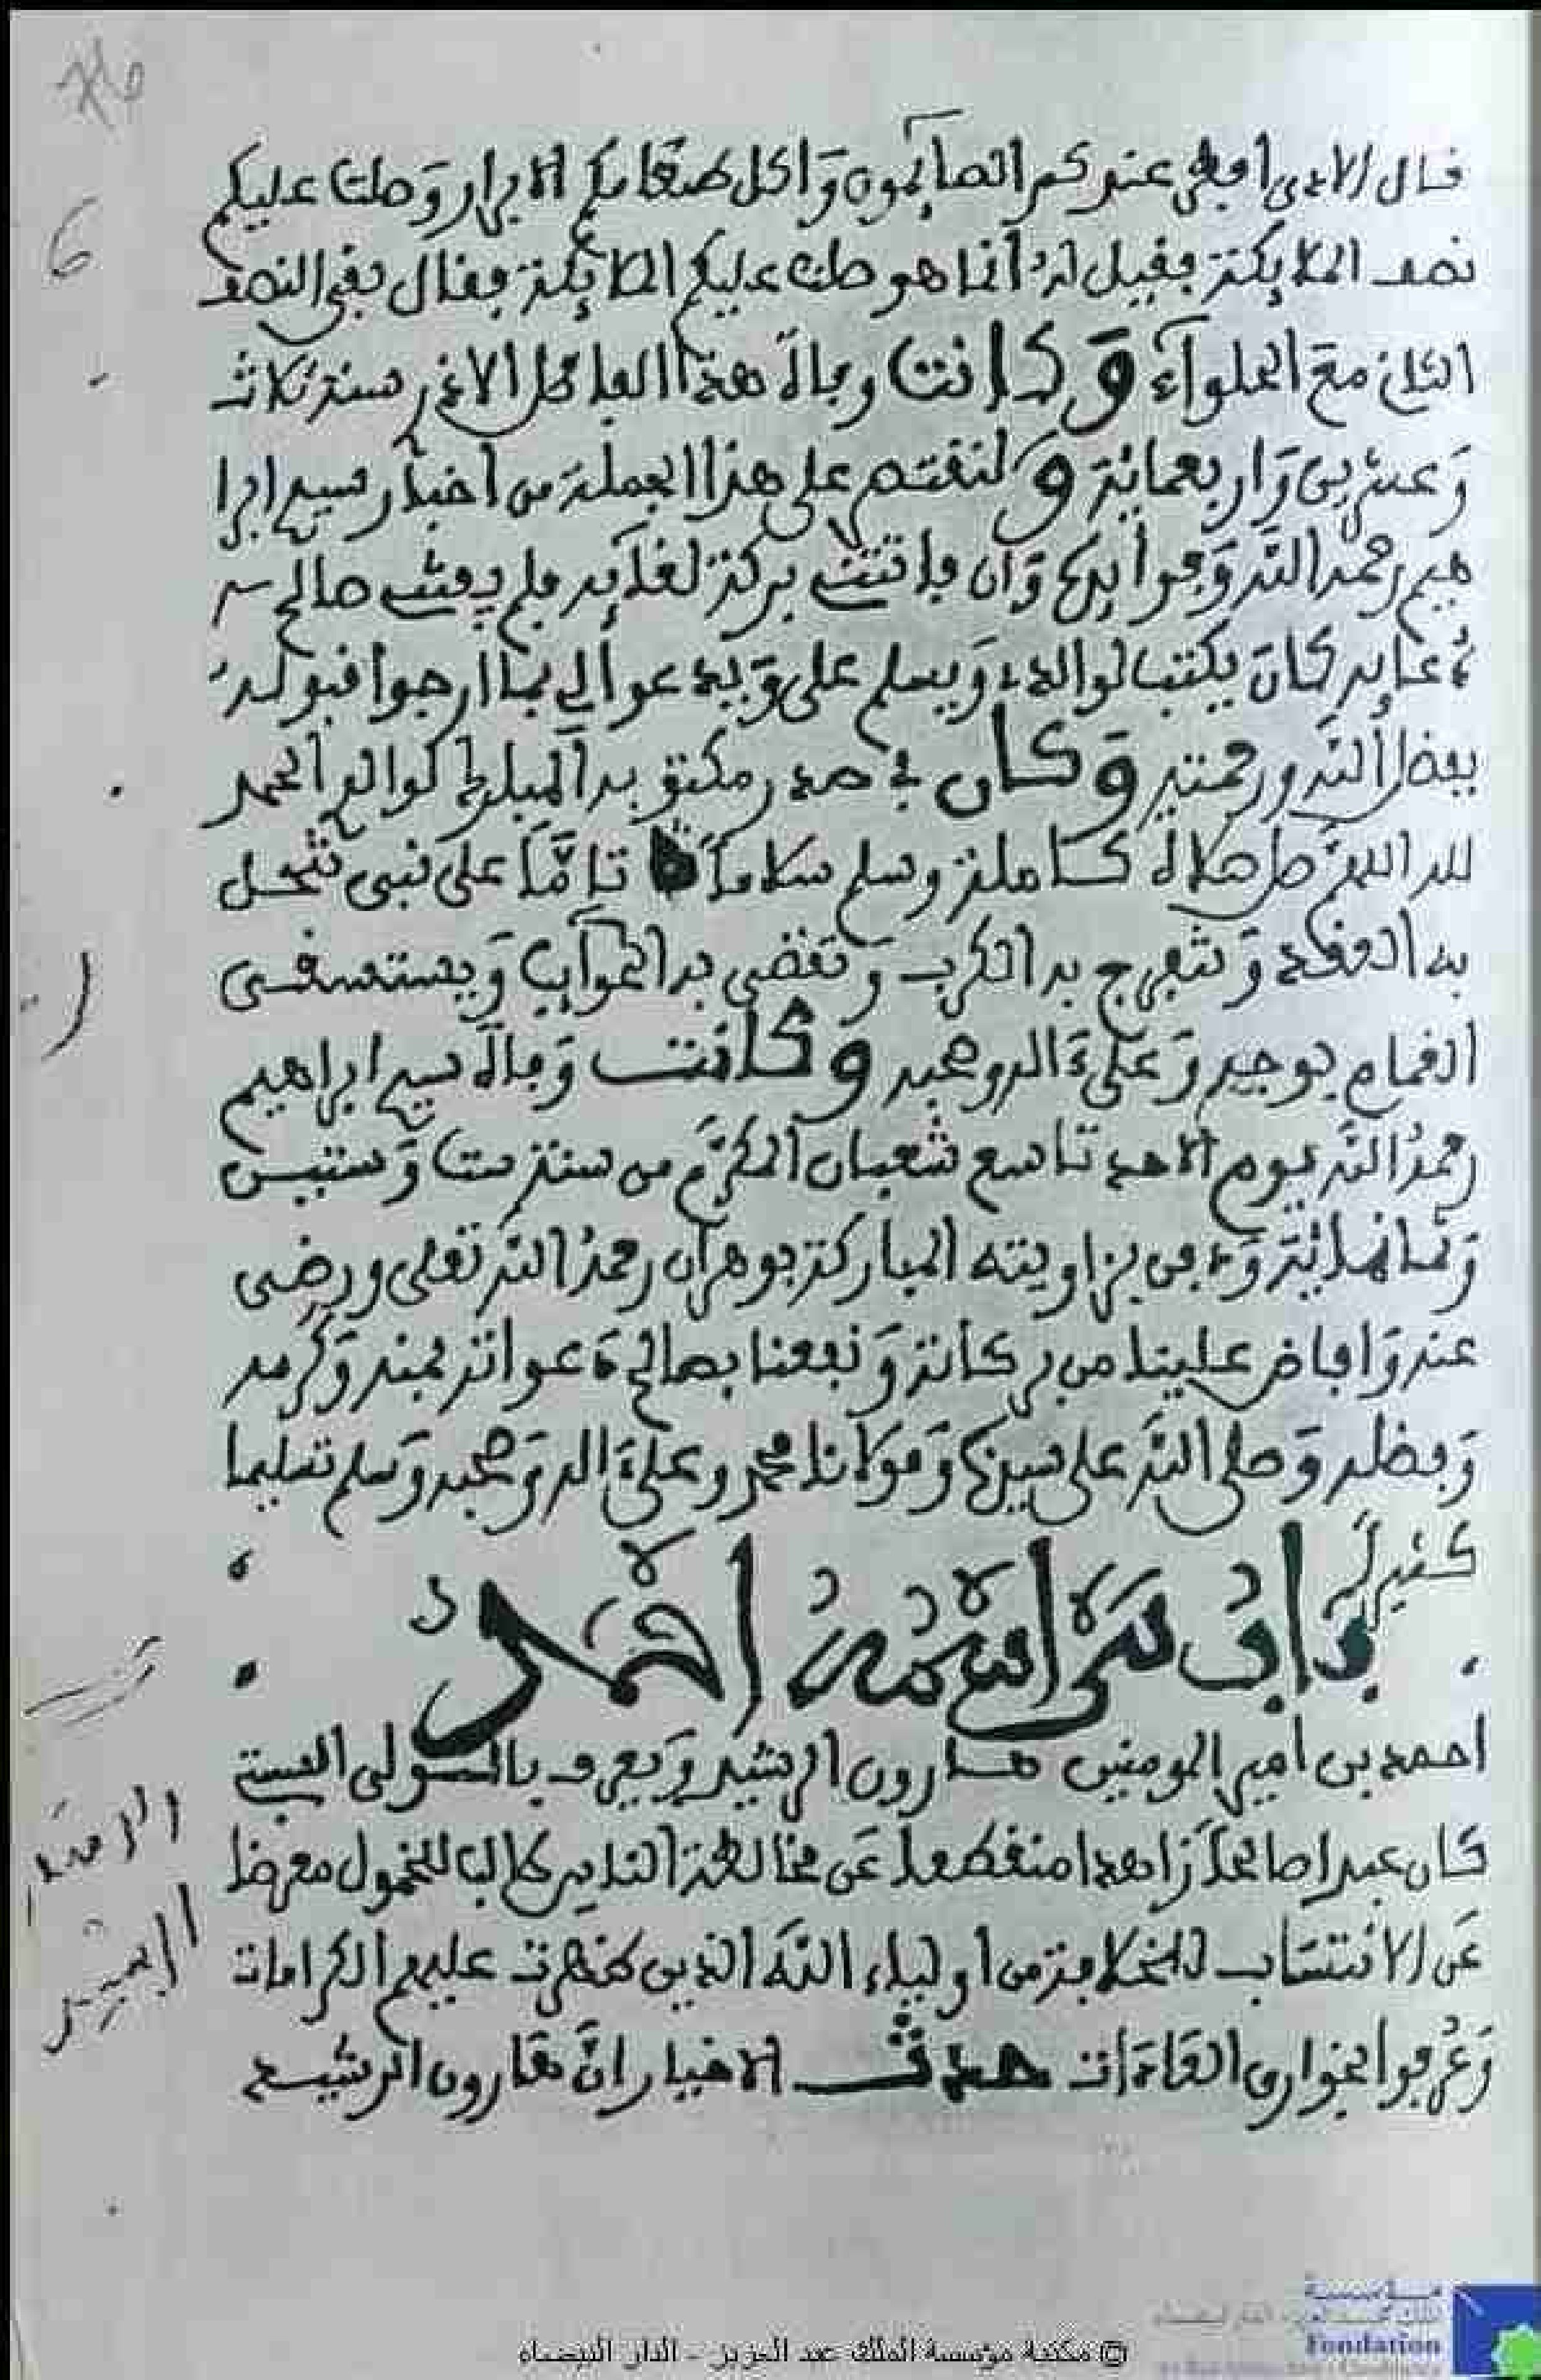 قال الاعرابي أفطر عندكم الصائمون وأكل طعامكم الابرار وصلت عليكم
نصف الملائكة فقيل له أنما هو صلت عليكم الملائكة فقال بقي النصف
الثاني مع الحلواء وكانت وفاة هذا الفاضل الاغر سنة ثلاث
وعشرين وأربعمائة ولنقتصر على هذا الجملة من أخبار سيدي ابرا
هيم رحمه الله وفوائده وان فاتتني بركة لقائه فلم يفتني صالح
دعائه كان يكتب لوالدي ويسلم علي ويدعوا لي بما ارجوا قبوله
بفضل الله ورحمته وكان في صدر مكتوبه المبارك لوالدي الحمد
لله اللهم صل صلاة كاملة وسلم سلاما تاما على نبي تنحل
به العقد وتنفرج به الكرب وتقضى به الحوائج ويستسقى
الغمام بوجهه وعلى ءاله وصحبه وكانت وفاة سيدي ابراهيم
رحمه الله يوم الاحد تاسع شعبان المكرم من سنة ست وستين
وثمانمائة ودفن بزاويته المباركة بوهران رحمه الله تعلى ورضي
عنه وافاض علينا من بركاته ونفعنا بصالح دعواته بمنه وكرمه
وفضله وصلى الله على سيدنا ومولانا محمد وعلى ءاله وصحبه وسلم تسليما
كثيرا
باب من اسمه احمد
احمد بن أمير المومنين هارون الرشيد ويعرف بالسبتي
كان عبدا صالحا زاهدا منقطعا عن مخالطة الناس طالبا للخمول معرضا
عن الانتساب للخلافة من أولياء الله الذين ظهرت عليهم الكرامات
وعرفوا بخوارق العادات حدث الاخيار ان هارون الرشيد
© مكتبة مؤسسة الملك عبد العزيز - الدار البيضاء
مؤسسة
Fondation